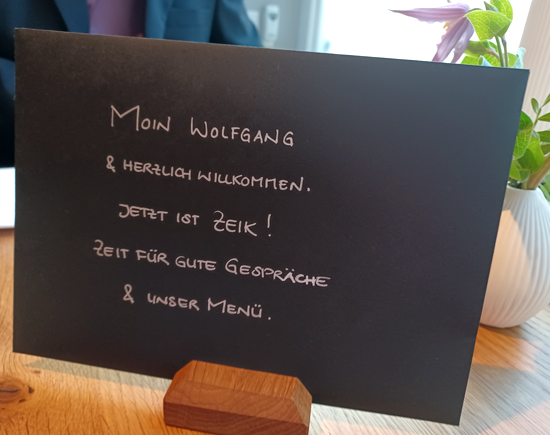 Moin Wolfgang
& herzlich willkommen.
Jetzt ist Zeik!
Zeit für gute Gespräche
& unser Menü.